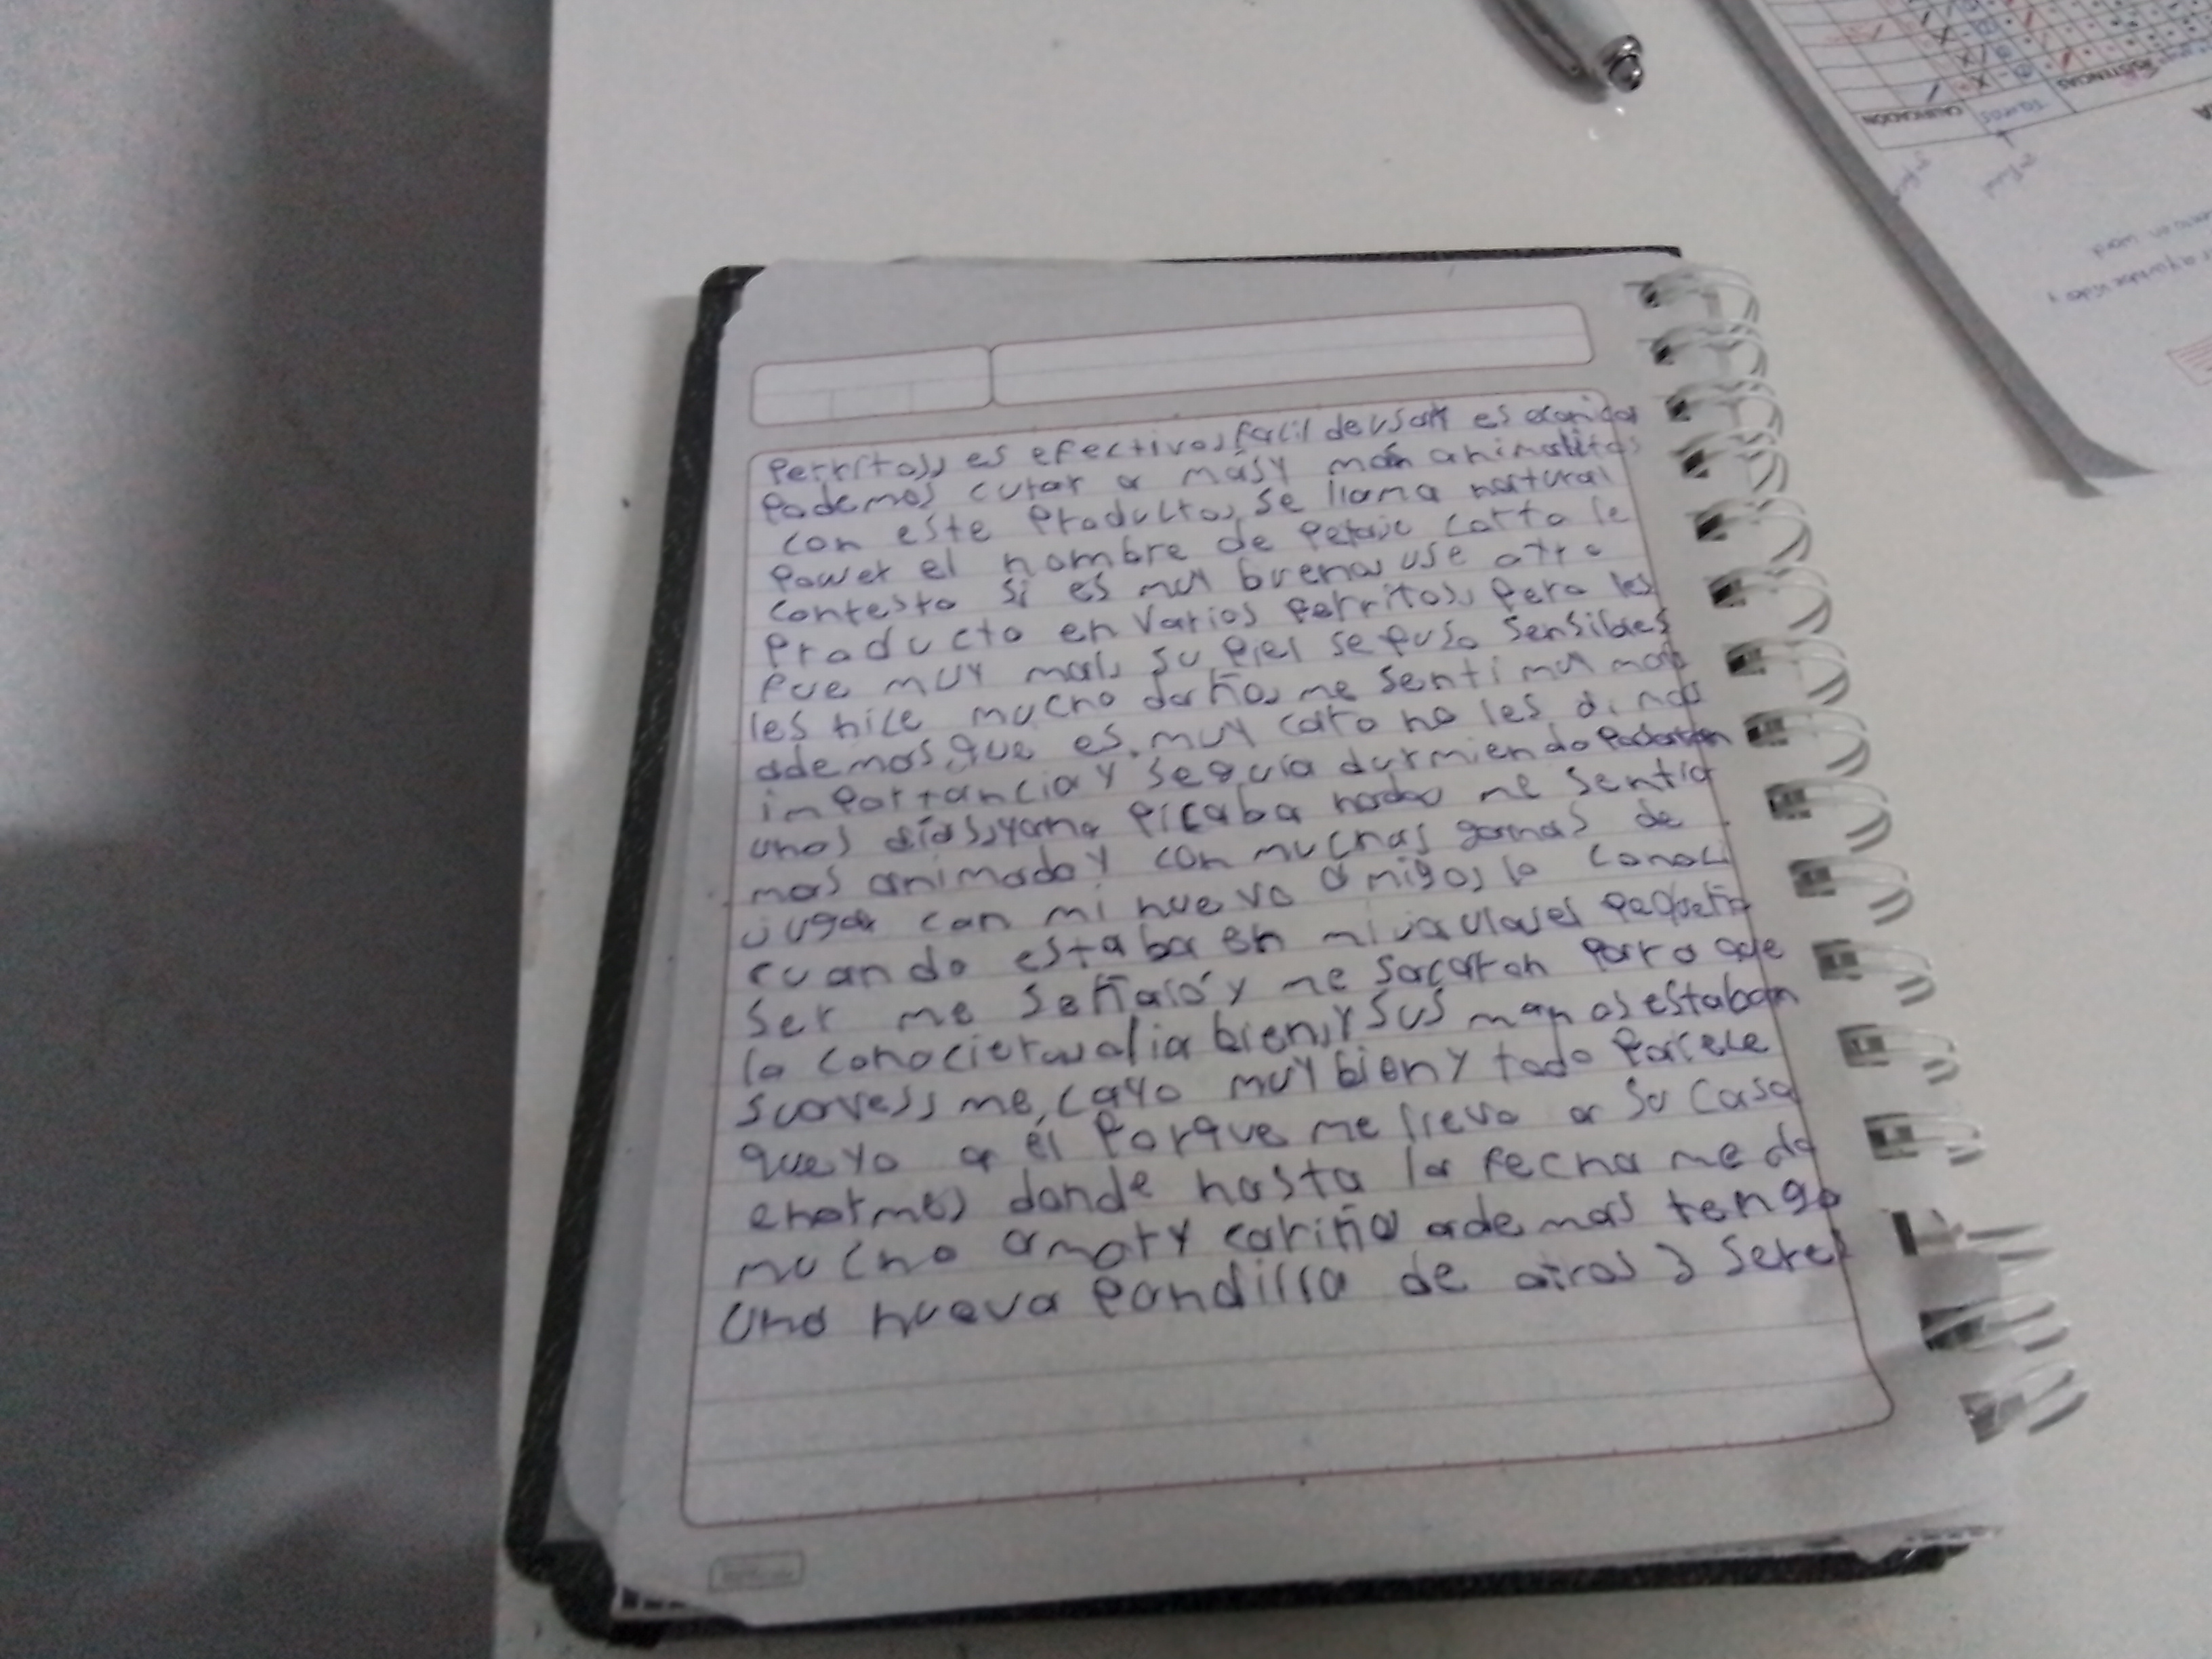 perritos, es efectivo, facil de usar es económico
podemos curar a más y más animalitos
con este producto, se llama natural
power el nombre de pelaje corto le
contesto si es muy bueno, use otro
producto en varios perritos, pero les
fue muy mal, su piel se puso sensibles
les hice mucho daño, me senti muy mal
ademas, que es muy caro no les di mas
importancia y seguia durmiendo pasaron
unos dias, ya no picaba nada, me sentia
mas animado y con muchas ganas de
jugar con mi nuevo amigo, lo conoci
cuando estaba en mi jaula, el pequeño
ser me señaló y me sacaron para que
lo conociera, olia bien, y sus manos estaban
suaves, me cayo muy bien y todo parece
que yo a él porque me llevo a su casa
enorme, donde hasta la fecha me da
mucho amor y cariño, ademas tengo
una nueva pandilla de otros 3 seres
CALIFICACIÓN
ASISTENCIAS